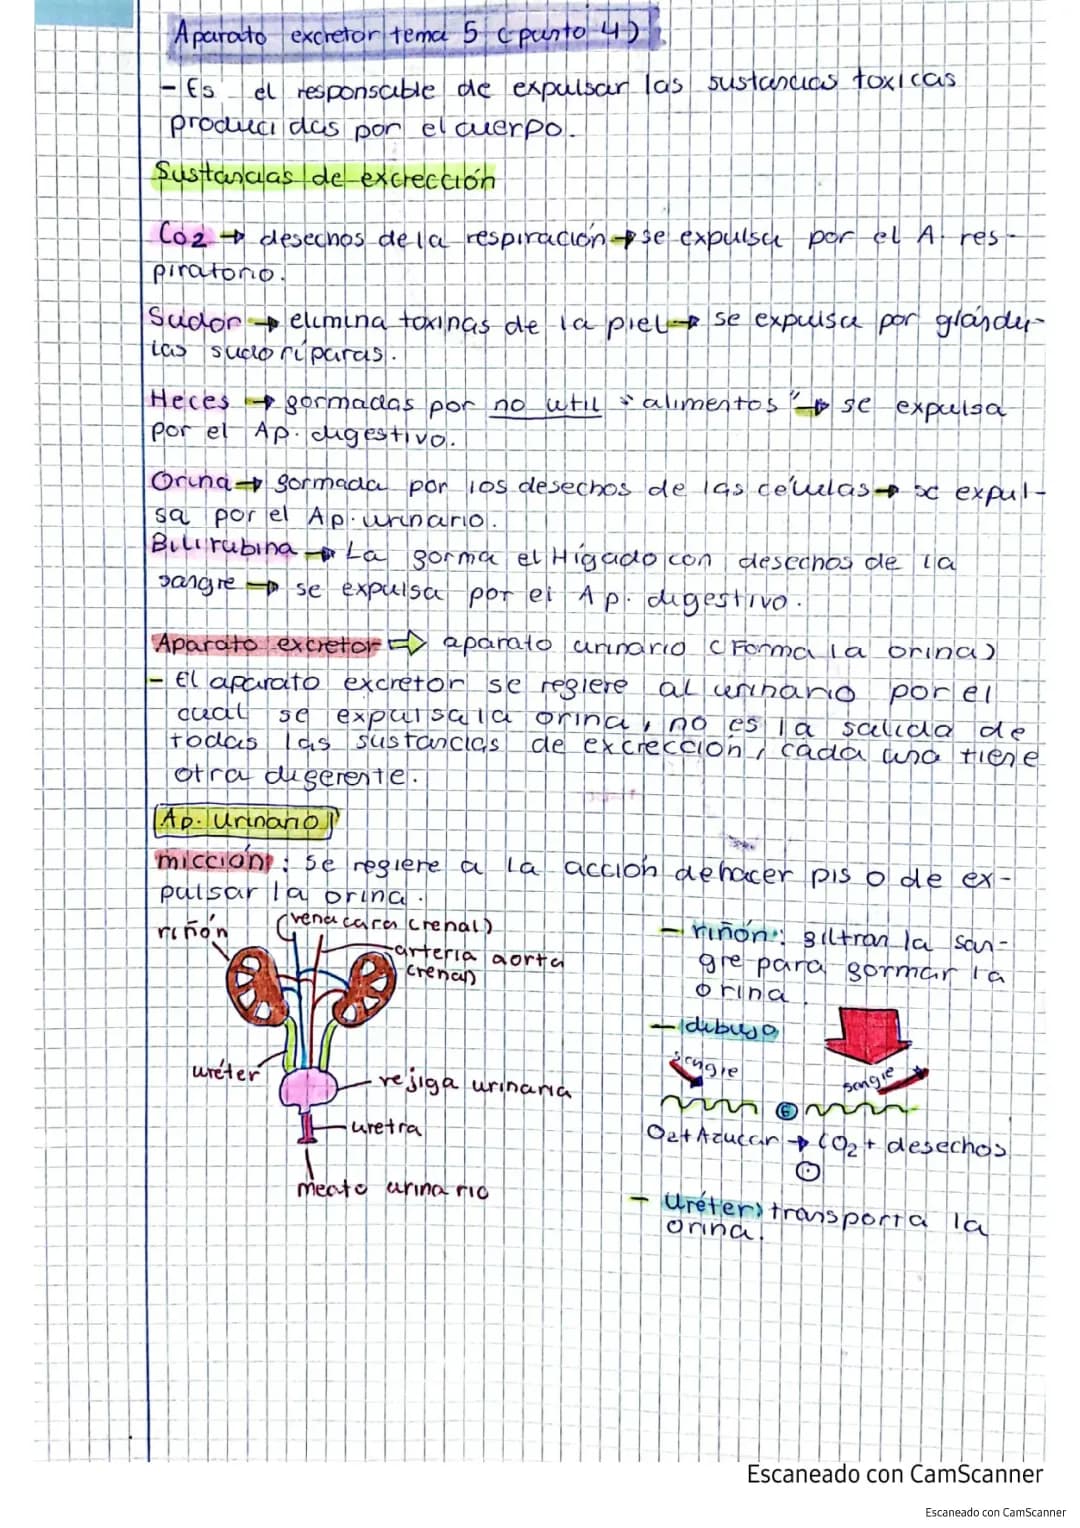 Aparato excretor tema 5 (punto 4)
- Es el responsable de expulsar las sustancias toxicas
producidas por el cuerpo.
Sustancias de excrección
Co2 → desechos de la respiración → se expulsa por el A. res-
piratorio.
Sudor → elimina toxinas de la piel → se expulsa por glándu-
las sudoríparas.
Heces → formadas por no util "alimentos" → se expulsa
por el Ap. digestivo.
Orina → formada por los desechos de las células → se expul-
sa por el Ap. urinario.
Bilirubina → La forma el Hígado con desechos de la
sangre → se expulsa por el Ap. digestivo.
Aparato excretor ⇒ aparato urinario (Forma la orina)
- El aparato excretor se refiere al urinario por el
cual se expulsa la orina, no es la salida de
todas las sustancias de excrección, cada una tiene
otra diferente.
Ap. Urinario
micción: se refiere a la acción de hacer pis o de ex-
pulsar la orina.
riñón
(vena cava (renal)
arteria aorta
(renal)
uréter
rejiga urinaria
uretra
meato urinario
- riñón: filtran la san-
gre para formar la
orina.
- dibujo
sangre
sangre
O2+Azucar → CO2 + desechos
- Uréter: transporta la
orina.
Escaneado con CamScanner
Escaneado con CamScanner